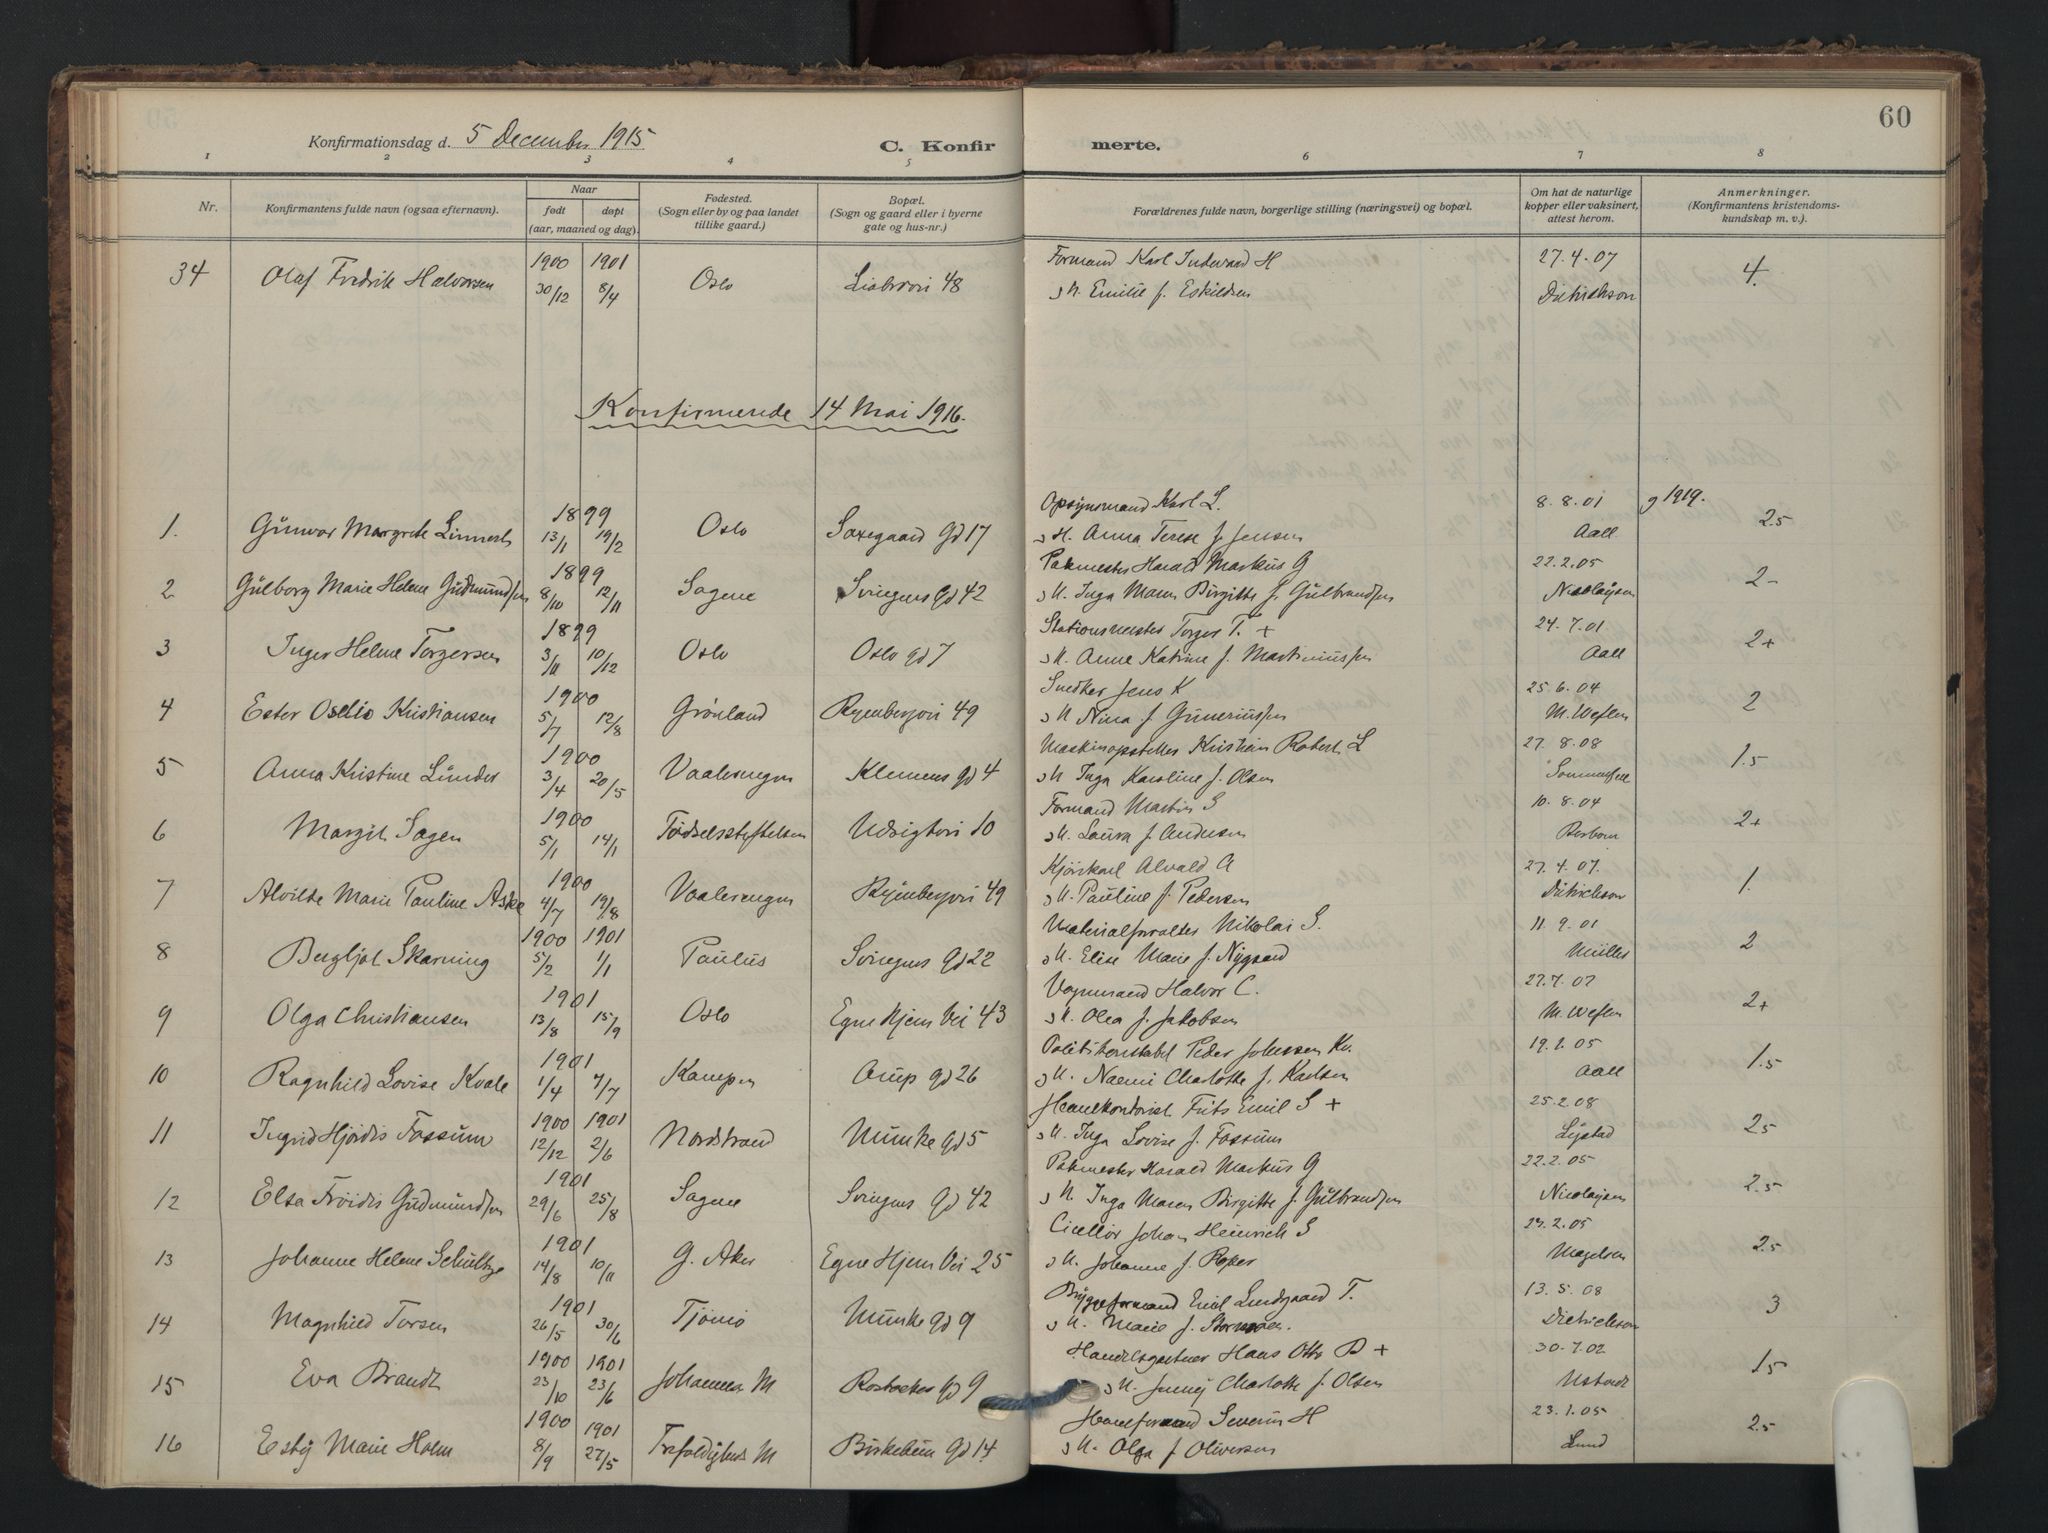 60
Konfirmationsdag d. 5 December 1915
C. Konfirmerte.
1 2 3 4 5 6 7 8
Nr.
Konfirmantens fulde navn (ogsaa efternavn).
Naar
født døpt
(aar, maaned og dag).
Fødested.
(Sogn eller by og paa landet
tillike gaard.)
Bopæl.
(Sogn og gaard eller i byerne
gate og hus-nr.)
Forældrenes fulde navn, borgerlige stilling (næringsvei) og bopæl.
Om hat de naturlige
kopper eller vaksinert,
attest herom.
Anmerkninger.
(Konfirmantens kristendoms-
kundskap m. v.).
1900 1901 Formand Karl H 27.4.07
34 Olaf Fredrik Halvorsen 30/12 8/4 Oslo Liabrovei 48 Emilie f. Eskildsen Dietrichson 4.
Konfirmerede 14 Mai 1916.
1899 Opsynsmand Karl L. 8.8.01 g 1919.
1. Gŭnvor Margrete Linnert 13/1 19/2 Oslo Saxegaard gd 17 H. Anna Terese f. Jensen Aall 2.5
1899 Pakmester Harald Markus G 22.2.05
2 Gŭlborg Marie Helene Gŭdmŭndsen 8/10 12/11 Sagene Svingens gd 42 H. Inga Maren Birgitte f. Gŭlbrandsen Nicolaysen 2-
1899 Stationsmester Torger T. + 24.7.01
3 Inger Helene Torgersen 3/11 10/12 Oslo Oslo gd 7 H. Anne Katrine f. Martiniŭssen Aall 2+
1900 Snedker Jens K 25.6.04
4 Ester Oselio Kristiansen 5/7 12/8 Grønland Ryenbergvei 49 H Nina f Gŭneriŭssen M. Weflen 2
1900 Maskinopsetter Kristian Robert L 27.8.08
5 Anna Kristine Lŭnder 3/4 20/5 Vaalerengen Klemens gd 4 H Inga Karoline f. Olsen Sommerfelt 1.5
1900 Formand Martin S 10.8.04
6 Margit Sagen 5/1 14/1 Fødselsstiftelsen Udsigtvei 10 H. Laŭra f. Andersen 2+
1900 Kjørekarl Alvald A 27.4.07.
7 Alvilde Marie Pauline Aske 4/7 19/8 Vaalerengen Ryenbergvei 49 H. Paŭline f. Pedersen Dietrichson 1.
1900 1901 Materialforvalter Nikolai S. 11.9.01
8 Bergljot Skarning 5/2 1/1 Paŭlŭs Svingens gd 22 H. Elise Marie f. Nygaard Mŭller 2
1901 Vognmand Halvor C. 27.7.07
9 Olga Christiansen 13/8 15/9 Oslo Egne Hjem Vei 43 H. Olea f. Jakobsen M. Weflen 2+
1901 Politikonstabel Peder Johnssen Kv. 19.1.05
10 Ragnhild Lovise Kvale 1/4 7/7 Kampen Arŭp gd 26 H. Naemi Charlotte f. Karlsen Aall 1.5
1900 1901 Handelskontorist Frits Emil S + 25.2.08
11 Ingrid Hjørdis Fossŭm 12/12 2/6 Nordstrand Mŭnke gd 5 H. Inga Lovise f. Fossŭm Lystad 2.5
1901 Pakmester Harald Markŭs G 22.2.05
12 Elsa Frøidis Gŭdmŭndsen 29/6 25/8 Sagene Svingens gd 42 H. Inga Maren Birgitte f. Gŭlbrandsen Nicolaysen 2.5
1901 Cicellør Johan Heinrich S 24.2.05
13 Johanne Helene Schŭltze 14/8 10/11 G. Aker Egne Hjem Vei 25 H. Johanne f. Røker Magelsen 2.5
1901 Byggeformand Emil Lundgaard T. 13.5.08
14 Magnhild Torsen 26/5 30/6 Tjømø Mŭnke gd 9 H. Marie f. Dietrichson 3
1900 1901 Handelsgartner Hans Otto B + 30.7.02
15 Eva Brandt 23/10 23/6 Johannes M gd 9 H. Charlotte f. Olsen Ustvedt 1.5
1900 1901 Severin H 23.1.05
16 Esty Marie Holm 8/9 27/5 Trefoldigheds M Birkebein gd 14 H. Olga f Oliversen Lund 2.5